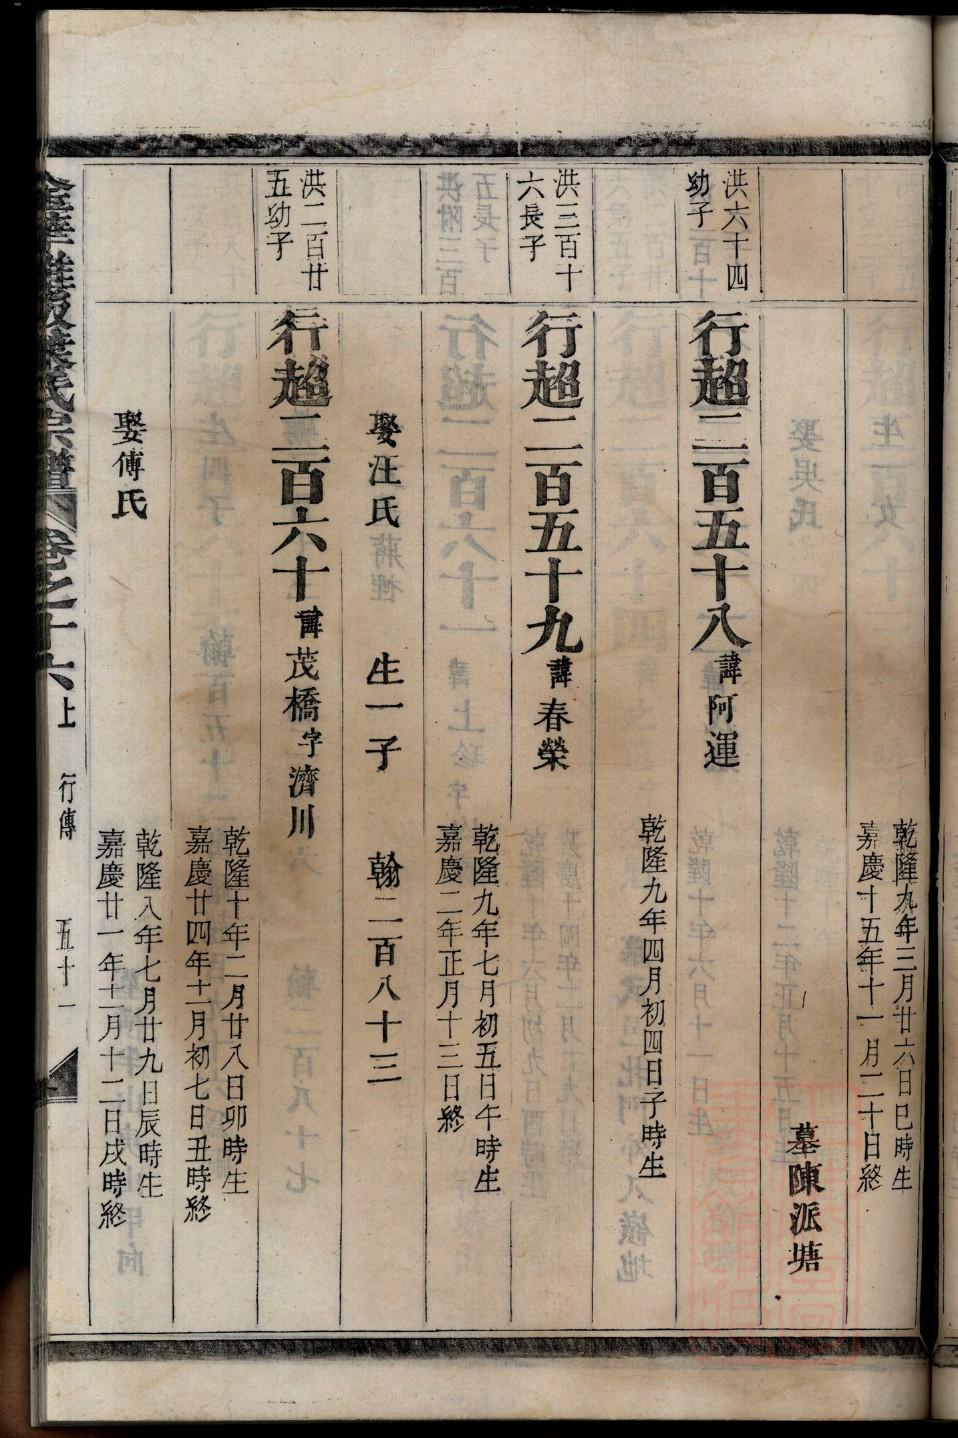 乾隆九年三月廿六日巳時生
嘉慶十五年十一月二十日終
墓陳派塘
洪六十四
幼子
行超二百五十八諱阿運
乾隆九年四月初四日子時生
洪三百十
六長子
行超二百五十九諱春榮
乾隆九年七月初五日午時生
嘉慶二年正月十三日終
娶汪氏 生一子 翰二百八十三
洪二百廿
五幼子
行超二百六十諱茂橋字濟川
乾隆十年二月廿八日卯時生
嘉慶廿四年十二月初七日丑時終
娶傅氏
乾隆八年七月廿九日辰時生
嘉慶廿一年十二月十二日戌時終
氏宗譜 卷之十六上 行傳 五十一